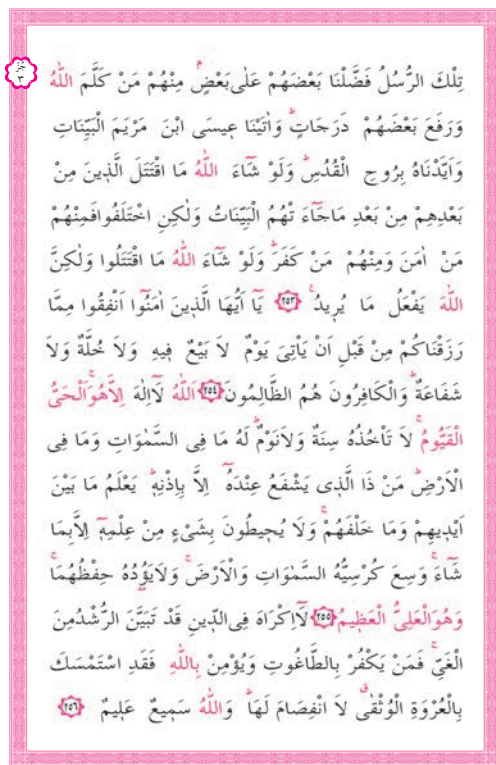 جزء ٣
تِلْكَ الرُّسُلُ فَضَّلْنَا بَعْضَهُمْ عَلٰى بَعْضٍۢ مِنْهُمْ مَنْ كَلَّمَ اللّٰهُ
وَرَفَعَ بَعْضَهُمْ دَرَجَاتٍۜ وَاٰتَيْنَا عٖيسَى ابْنَ مَرْيَمَ الْبَيِّنَاتِ
وَاَيَّدْنَاهُ بِرُوحِ الْقُدُسِۜ وَلَوْ شَٓاءَ اللّٰهُ مَا اقْتَتَلَ الَّذٖينَ مِنْ
بَعْدِهِمْ مِنْ بَعْدِ مَاجَٓاءَ تْهُمُ الْبَيِّنَاتُ وَلٰكِنِ اخْتَلَفُوا فَمِنْهُمْ
مَنْ اٰمَنَ وَمِنْهُمْ مَنْ كَفَرَۜ وَلَوْ شَٓاءَ اللّٰهُ مَا اقْتَتَلُوا وَلٰكِنَّ
اللّٰهَ يَفْعَلُ مَا يُرٖيدُۚ ﴿٢٥٣﴾ يَٓا اَيُّهَا الَّذٖينَ اٰمَنُٓوا اَنْفِقُوا مِمَّا
رَزَقْنَاكُمْ مِنْ قَبْلِ اَنْ يَاْتِيَ يَوْمٌ لَا بَيْعٌ فٖيهِ وَلَا خُلَّةٌ وَلَا
شَفَاعَةٌۜ وَالْكَافِرُونَ هُمُ الظَّالِمُونَ ﴿٢٥٤﴾ اَللّٰهُ لَٓا اِلٰهَ اِلَّا هُوَۚ اَلْحَيُّ
الْقَيُّومُۚ لَا تَاْخُذُهُ سِنَةٌ وَلَا نَوْمٌۜ لَهُ مَا فِى السَّمٰوَاتِ وَمَا فِى
الْاَرْضِۜ مَنْ ذَا الَّذٖى يَشْفَعُ عِنْدَهُٓ اِلَّا بِاِذْنِهٖۜ يَعْلَمُ مَا بَيْنَ
اَيْدٖيهِمْ وَمَا خَلْفَهُمْۚ وَلَا يُحٖيطُونَ بِشَىْءٍ مِنْ عِلْمِهٖٓ اِلَّا بِمَا
شَٓاءَۚ وَسِعَ كُرْسِيُّهُ السَّمٰوَاتِ وَالْاَرْضَۚ وَلَا يَؤُ۫دُهُ حِفْظُهُمَاۚ
وَهُوَ الْعَلِىُّ الْعَظٖيمُ ﴿٢٥٥﴾ لَٓا اِكْرَاهَ فِى الدّٖينِ قَدْ تَبَيَّنَ الرُّشْدُ مِنَ
الْغَىِّۚ فَمَنْ يَكْفُرْ بِالطَّاغُوتِ وَيُؤْمِنْ بِاللّٰهِ فَقَدِ اسْتَمْسَكَ
بِالْعُرْوَةِ الْوُثْقٰىۗ لَا انْفِصَامَ لَهَاۜ وَاللّٰهُ سَمٖيعٌ عَلٖيمٌ ﴿٢٥٦﴾